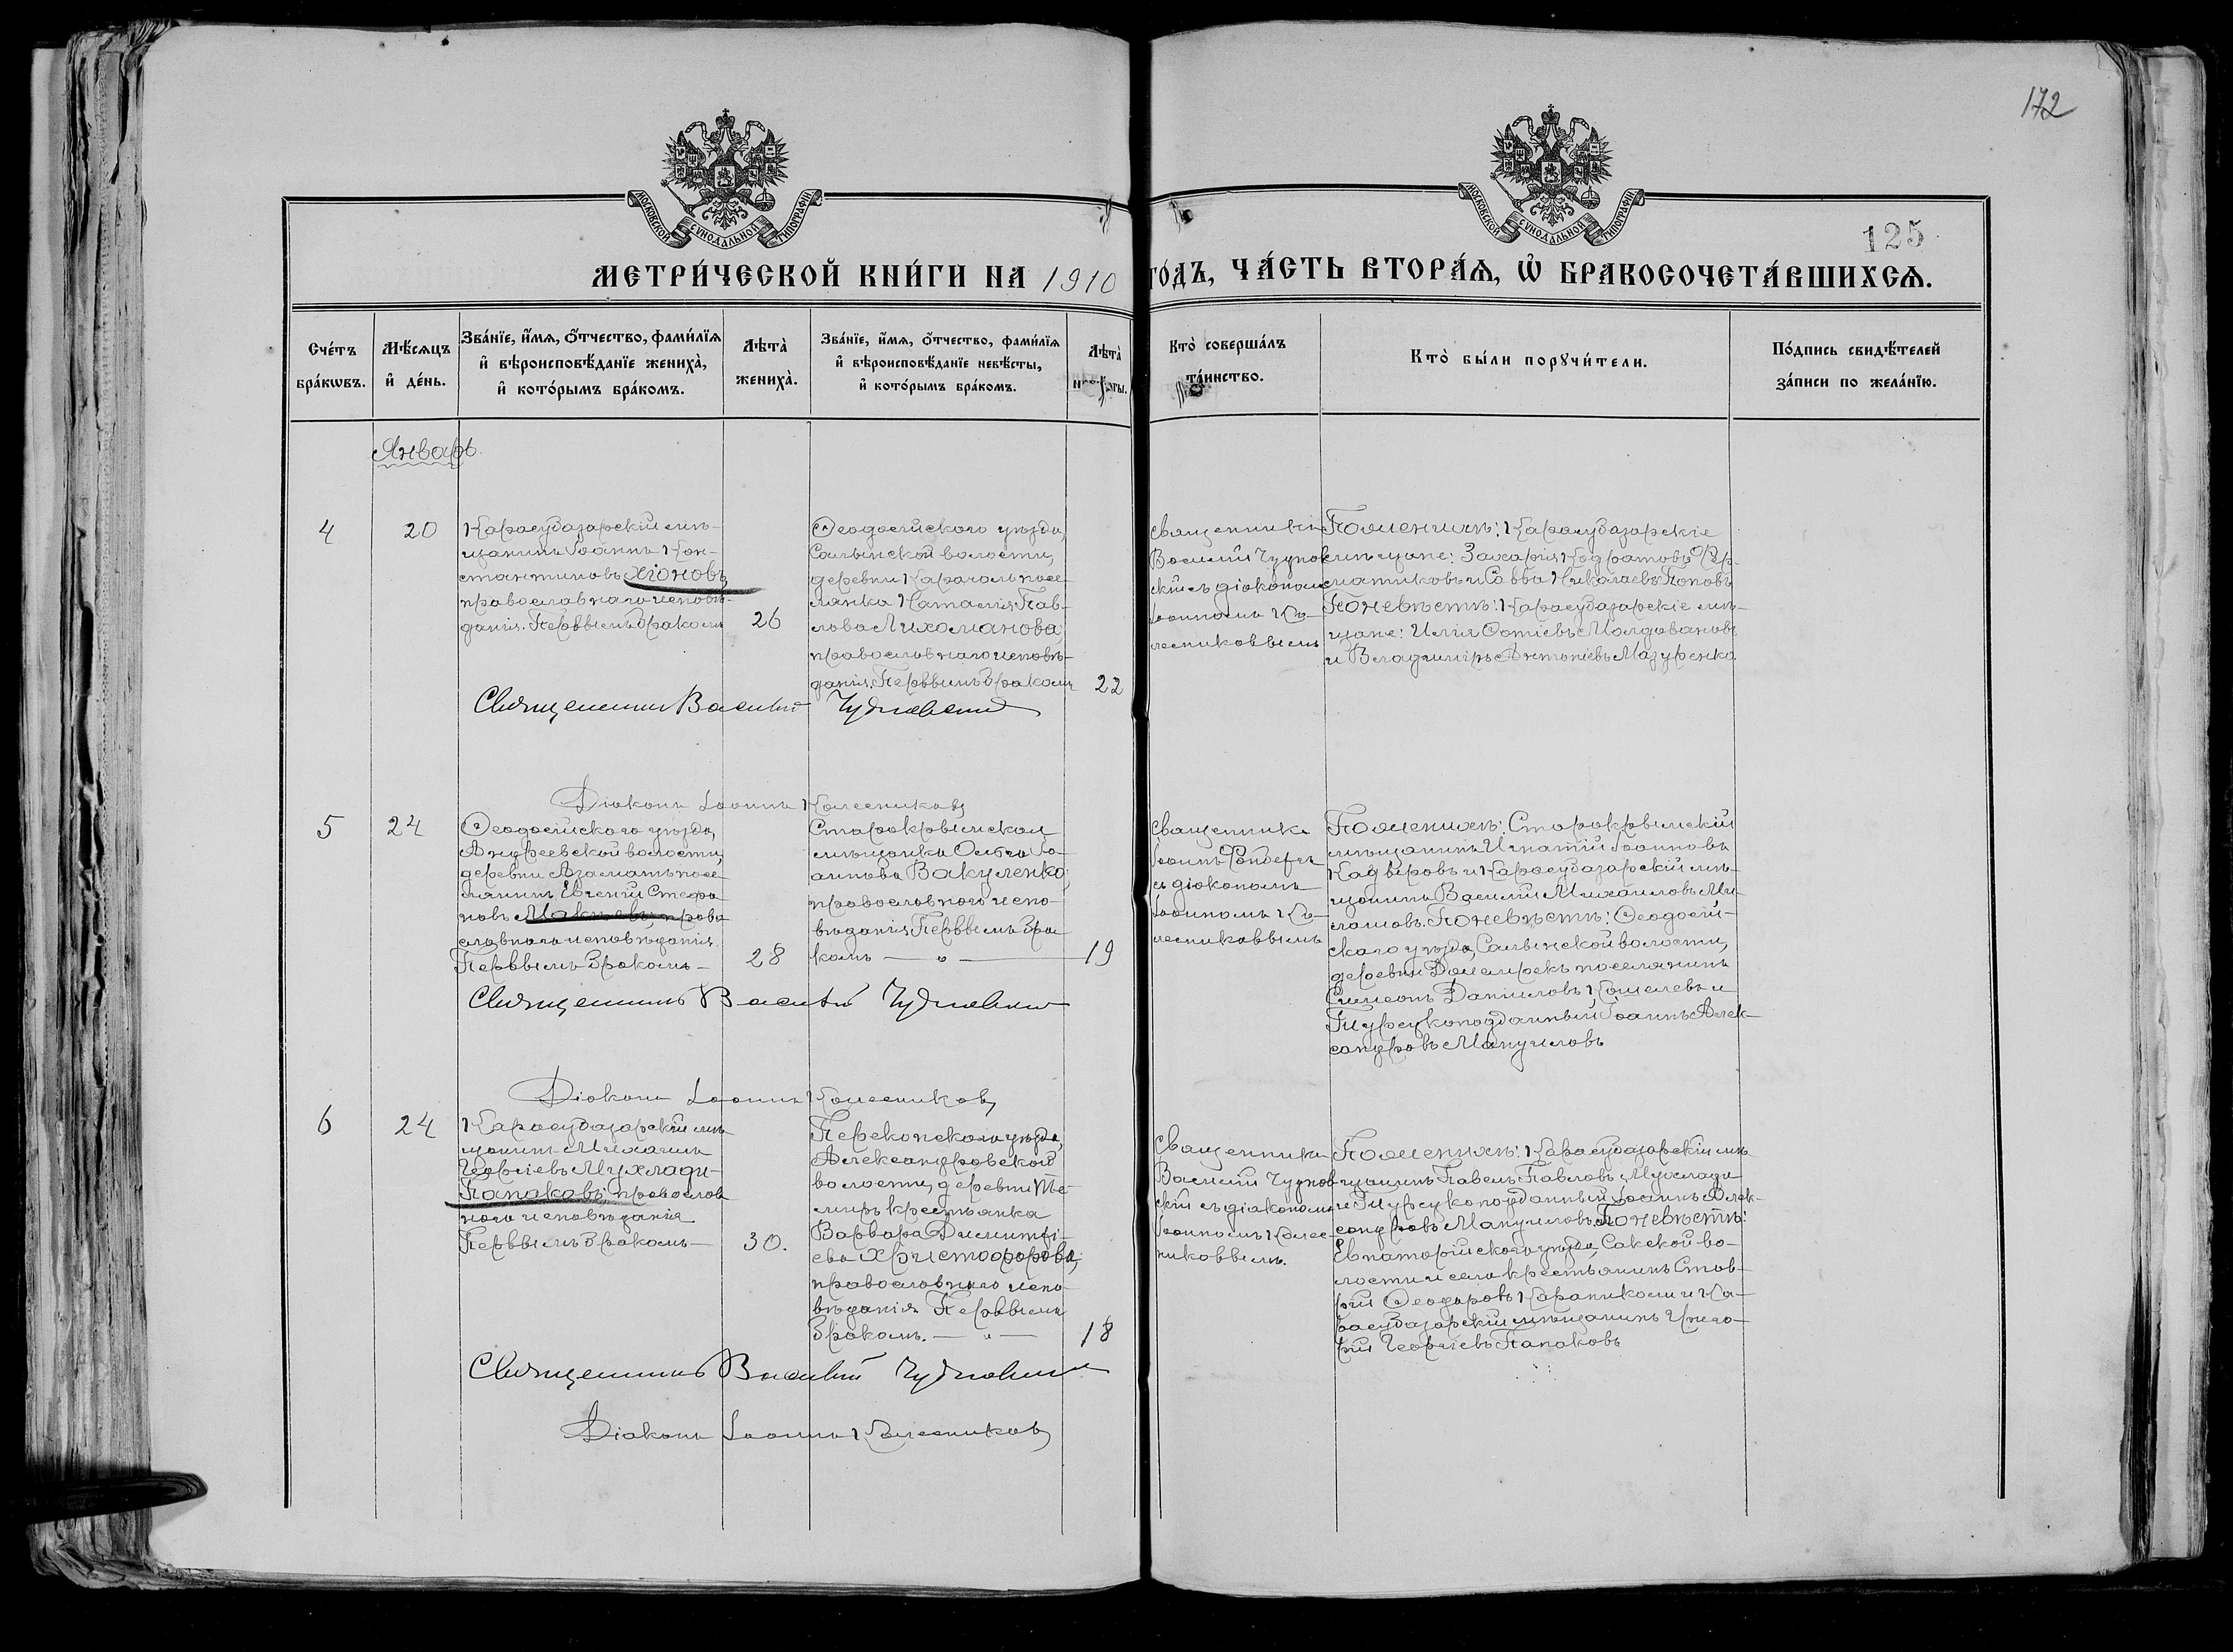 172
МОСКОВСКОЙ СѴНОДАЛЬНОЙ ТИПОГРАФІИ
МОСКОВСКОЙ СѴНОДАЛЬНОЙ ТИПОГРАФІИ
125
МЕТРИ́ЧЕСКОЙ КНИ́ГИ НА 1910 ГО́ДЪ, ЧА́СТЬ ВТОРА́Я, Ѡ҆ БРАКОСОЧЕТА́ВШИХСЯ.
Сче́тъ
бра́кѡвъ.
Мѣ́сяцъ
и҆ де́нь.
Зва́нїе, и҆́мя, ѻ҆́тчество, фами́лїя
и҆ вѣроисповѣ́данїе жениха̀,
и҆ кото́рымъ бра́комъ.
Лѣта̀
жениха̀.
Зва́нїе, и҆́мя, ѻ҆́тчество, фами́лїя
и҆ вѣроисповѣ́данїе невѣ́сты,
и҆ кото́рымъ бра́комъ.
Лѣта̀
невѣ́сты.
Кто̀ соверша́лъ
та́инство.
Кто̀ бы́ли порꙋчи́тели.
По́дпись свидѣ́телей
за́писи по жела́нїю.
Январь
4
20
Карасубазарскій мѣ-
щанинъ Іоаннъ Кон-
стантиновъ Хіоновъ,
православнаго исповѣ-
данія. Первымъ бракомъ
26
Ѳеодосійскаго уѣзда,
Салынской волости,
деревни Карагозъ посе-
лянка Наталія Пав-
лова Лихоманова,
православнаго исповѣ-
данія. Первымъ бракомъ
22
Священникъ
Василій Чуднов-
скій съ діакономъ
Іоанномъ Ко-
лесниковымъ
По женихѣ: Карасубазарскіе
мѣщане: Захарія
и Савва Николаевъ Поповъ
По невѣстѣ: Карасубазарскіе мѣ-
щане: Илія Фотіевъ Молдовановъ
и Владиміръ Антоніевъ Мазуренко
Священникъ Василій Чудновский
Діаконъ Іоаннъ Колесниковъ
5
24
Ѳеодосійскаго уѣзда,
Андреевской волости,
деревни Азаматъ посе-
лянинъ Евгеній Стефа-
новъ правo-
славнаго исповѣданія.
Первымъ бракомъ —
28
Старокрымская
мѣщанка Ольга Іо-
аннова Вакуленко,
православнаго испо-
вѣданія Первымъ бра-
комъ — " —
19
Священникъ
Іоаннъ
съ діакономъ
Іоанномъ Ко-
лесниковымъ
По женихѣ: Старокрымскій
мѣщанинъ Игнатій Іоанновъ
и Карасубазарскій мѣ-
щанинъ Василій Михаиловъ Ми-
По невѣстѣ: Ѳеодосій-
скаго уѣзда, Салынской волости,
деревни поселянинъ
Симеонъ Даніиловъ Кошелевъ и
Турецкоподданный Іоаннъ Алек-
сандровъ Мануиловъ
Священникъ Василій Чудновский
Діаконъ Іоаннъ Колесниковъ
6
24
Карасубазарскій мѣ-
щанинъ Михаилъ
Георгіевъ Мухлади-
Папаковъ, православ-
наго исповѣданія
Первымъ бракомъ —
30.
Перекопскаго уѣзда,
Александровской
волости, деревни Те-
миръ крестьянка
Варвара Димитрі-
ева Христофорова,
православнаго испо-
вѣданія Первымъ
бракомъ. — " —
18
Священникъ
Василій Чуднов-
скій съ діакономъ
Іоанномъ Колес-
никовымъ.
По женихѣ: Карасубазарскій мѣ-
щанинъ Павелъ Павловъ Мухлади
и Турецкоподданный Іоаннъ Алек-
сандровъ Мануиловъ. По невѣстѣ:
Евпаторійскаго уѣзда, Сакской во-
лости и села крестьянинъ Став-
рій Ѳеодоровъ и Ка-
расубазарскій мѣщанинъ Григо-
рій Георгіевъ Папаковъ
Священникъ Василій Чудновский
Діаконъ Іоаннъ Колесниковъ